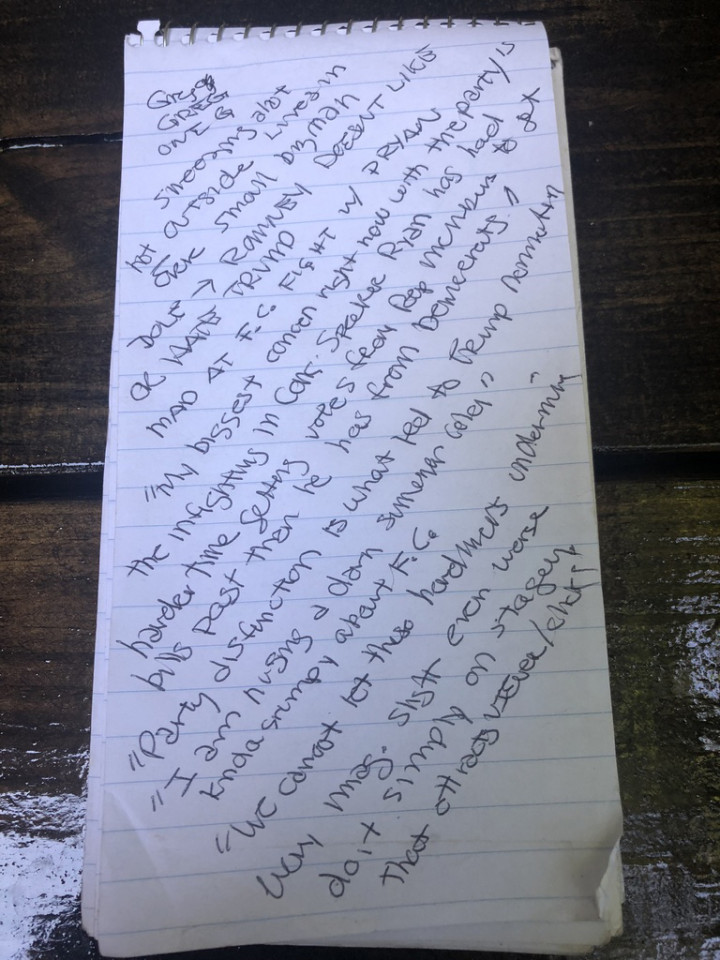 Greg
GREG
ONE G
smoking alot
hot outside lives in
small
Dont → ROMNEY DOESNT LIKE
OR HATE TRUMP
MAD AT F.C. FIGHT W/ PRYAN
"My biggest concern right now with the party is
the infighting in Con. Speaker Ryan has had
harder time getting votes from Rep members to get
bills past then he has from Democrats."
"Party disfunction is what led to Trump nomination"
"I am nusing a down summer
kinda grumpy about F.C.
"We cannot let these hardliners undermin
way mag. even worse
do it simply on
that attracts viewer/